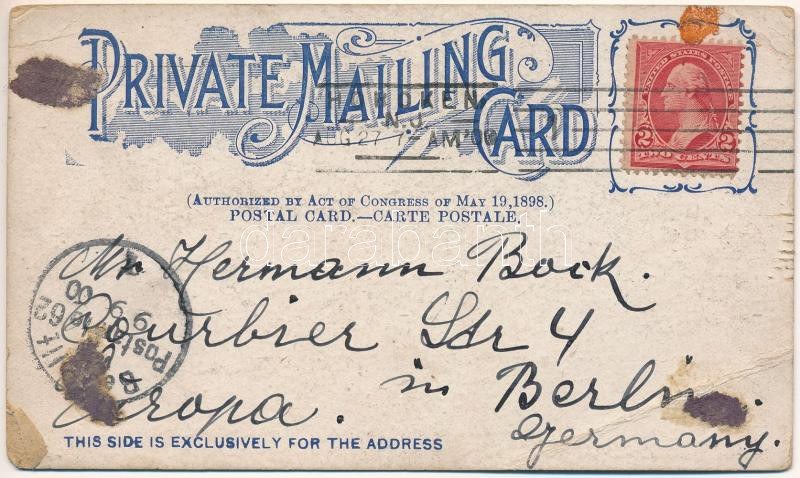 PRIVATE MAILING
CARD
HOBOKEN,
N.J.
AUG 27 7 AM '00
UNITED STATES POSTAGE
2 2
TWO CENTS
(AUTHORIZED BY ACT OF CONGRESS OF MAY 19, 1898.)
POSTAL CARD.—CARTE POSTALE.
darabanth
Mr Hermann Bock.
Courbier Str 4
Europa. in Berlin.
Germany.
THIS SIDE IS EXCLUSIVELY FOR THE ADDRESS